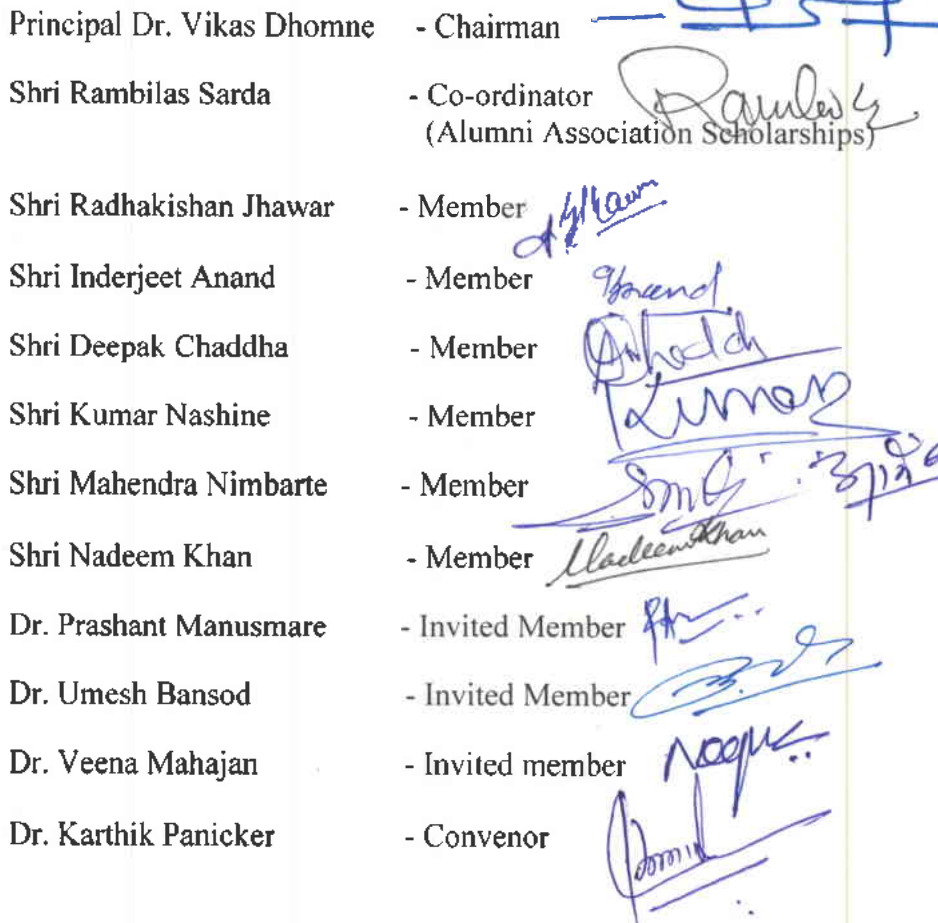 Principal Dr. Vikas Dhomne - Chairman
Shri Rambilas Sarda - Co-ordinator
(Alumni Association Scholarships)
Shri Radhakishan Jhawar - Member
Shri Inderjeet Anand - Member
Shri Deepak Chaddha - Member
Shri Kumar Nashine - Member Kumar
Shri Mahendra Nimbarte - Member
Shri Nadeem Khan - Member Nadeem Khan
Dr. Prashant Manusmare - Invited Member
Dr. Umesh Bansod - Invited Member
Dr. Veena Mahajan - Invited member
Dr. Karthik Panicker - Convenor